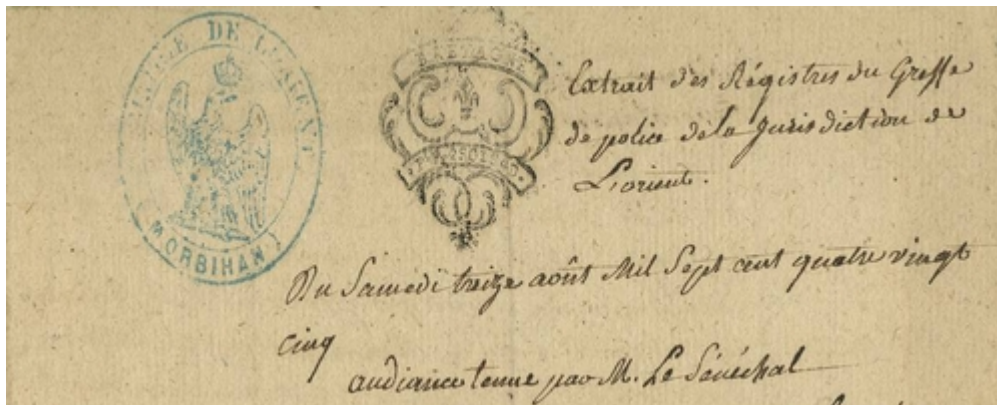 MAIRIE DE LORIENT
(MORBIHAN)
BRETAGNE
Extrait des Régistres du Greffe
de police de la Jurisdiction de
L'orient.
Du Samedi treize août Mil Sept cent quatre vingt
cinq
audiance tenue par M. Le Sénéchal